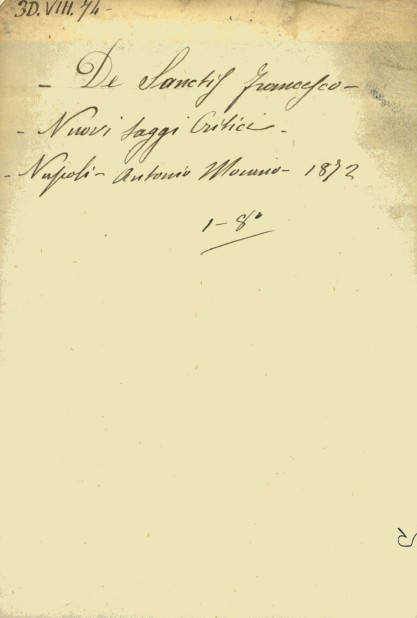 3D. VIII. 74-
- De Sanctis Francesco -
- Nuovi Saggi Critici -
- Napoli - Antonio Morano - 1872
1 - 8°